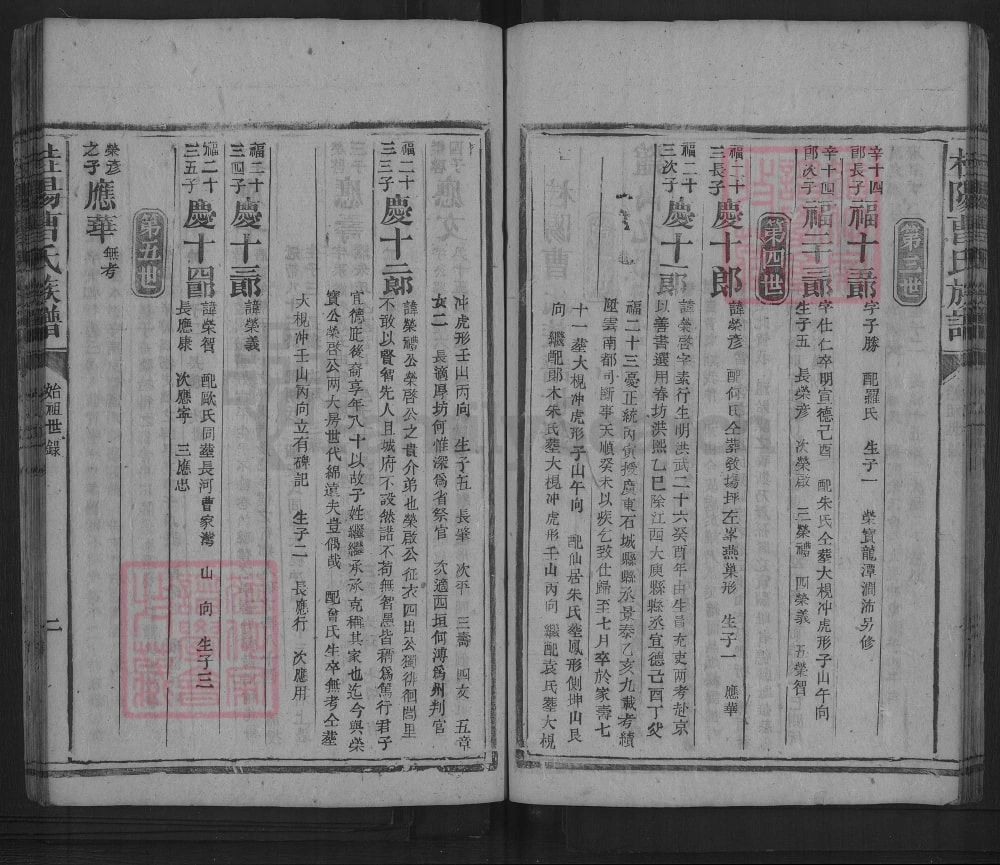 桂陽曹氏族譜
第三世
辛十四郎長子 福十三郎 字子勝 配羅氏 生子一 榮寶龍潭澗沛另修
辛十四郎次子 福二十三郎 字仕仁卒明宣德己酉 配朱氏仝塟大梘冲虎形子山午向
生子五 長榮彦 次榮啟 三榮禮 四榮義 五榮智
第四世
福二十三長子 慶十郎 諱榮彦 配何氏仝塟敎塲坪左峯燕巢形 生子一 應華
福二十三次子 慶十一郎 諱榮啓字素行生明洪武二十六癸酉年由生員充吏两考赴京
以善書選用春坊洪熙乙巳除江西大庾縣縣丞宣德己酉丁父
福二十三憂正統丙寅授廣東石城縣縣丞景泰乙亥九載考績
陞雲南都司斷事天順癸未以疾乞致仕歸至七月卒於家壽七
十一塟大梘冲虎形子山午向 配仙居朱氏塟鳳形側坤山艮
向 繼配鄖木朱氏塟大梘冲虎形壬山丙向 繼配袁氏塟大梘
冲虎形壬山丙向 生子五 長肇 次平 三壽 四攴 五章
女二 長適厚坊何惟深爲省祭官 次適西垣何溥爲州判官
福二十三三子 慶十二郎 諱榮禮公榮啓公之貴介弟也榮啟公征衣四出公獨徘徊閭里
不敢以賢智先人且城府不設然諾不苟無智愚皆稱爲篤行君子
宜德庇後裔享年八十以故子姓繼繼承承克稱其家也迄今與榮
寶公榮啓公两大房世代綿遠夫豈偶哉 配曾氏生卒無考仝塟
大梘冲壬山丙向立有碑記 生子二 長應行 次應用
福二十三四子 慶十三郎 諱榮義
福二十三五子 慶十四郎 諱榮智 配歐氏同塟長河曹家灣 山 向 生子三
長應康 次應寧 三應忠
第五世
榮彦之子 應華 無考
桂陽曹氏族譜 始祖世錄 二